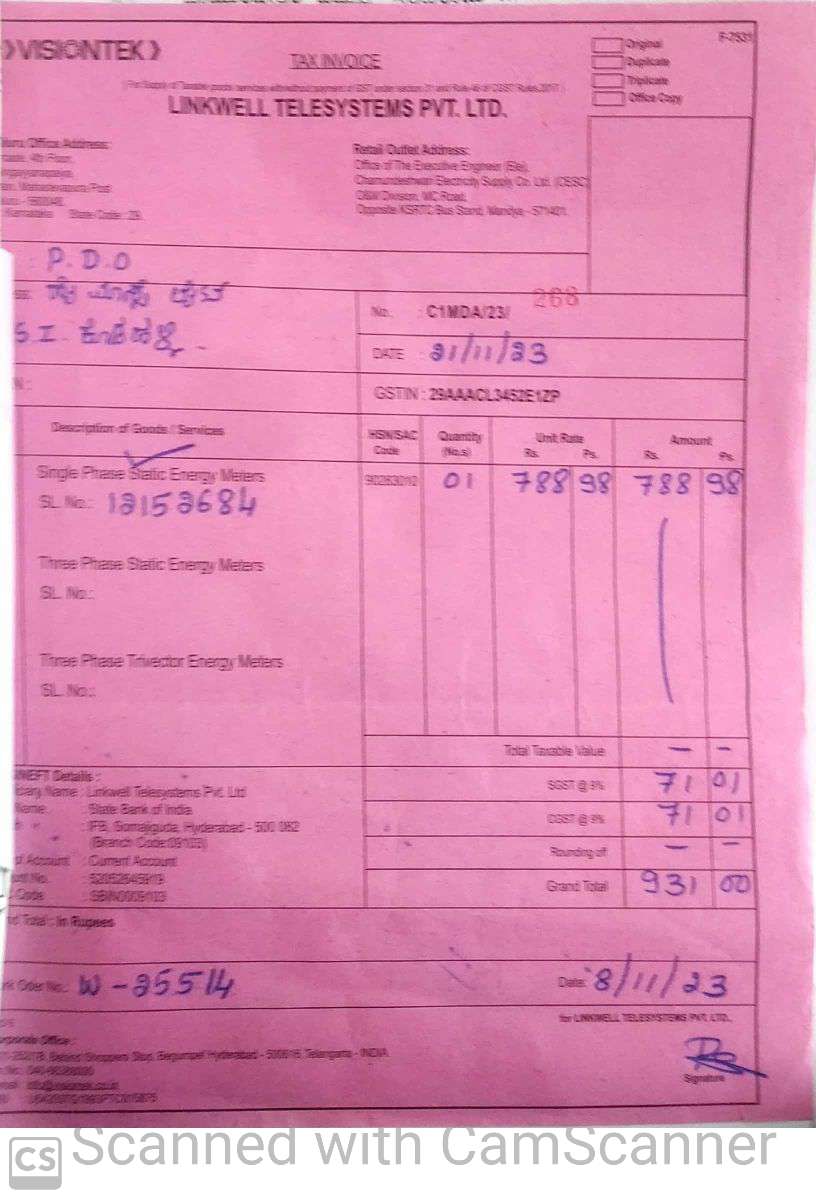 VISIONTEK
TAX INVOICE
Original
Duplicate
Triplicate
Office Copy
F-2531
LINKWELL TELESYSTEMS PVT. LTD.
Office Address:
4th Floor,
Mahadevapura Post
Karnataka State Code : 29.
Retail Outlet Address:
Office of The Executive Engineer (Ele),
Chamundeshwari Electricity Supply Co. Ltd. (CESC)
O&M Division, MC Road,
Opposite KSRTC Bus Stand, Mandya - 571401.
: P.D.O
S.I. ಕೊಡಿಹಳ್ಳಿ
No. : C1MDA/23/ 268
DATE : 21/11/23
GSTIN : 29AAACL3452E1ZP
Description of Goods / Services
HSN/SAC Code
Quantity (No.s)
Unit Rate Rs. Ps.
Amount Rs. Ps.
Single Phase Static Energy Meters 90283010 01 788 98 788 98
SL. No.: 12152684
Three Phase Static Energy Meters
SL. No.:
Three Phase Trivector Energy Meters
SL. No.:
Total Taxable Value — —
SGST @ 9% 71 01
CGST @ 9% 71 01
Rounding off — —
Grand Total 931 00
NEFT Details :
Name : Linkwell Telesystems Pvt. Ltd
Name : State Bank of India
: IFB, Somajiguda, Hyderabad - 500 082
(Branch Code:09103)
Account : Current Account
: SBIN0009103
Total : In Rupees
Order No.: W-25514
Date: 8/11/23
for LINKWELL TELESYSTEMS PVT. LTD.
Signature
Corporate Office :
Behind Shoppers Stop, Begumpet Hyderabad - 500016, Telangana - INDIA
CS Scanned with CamScanner